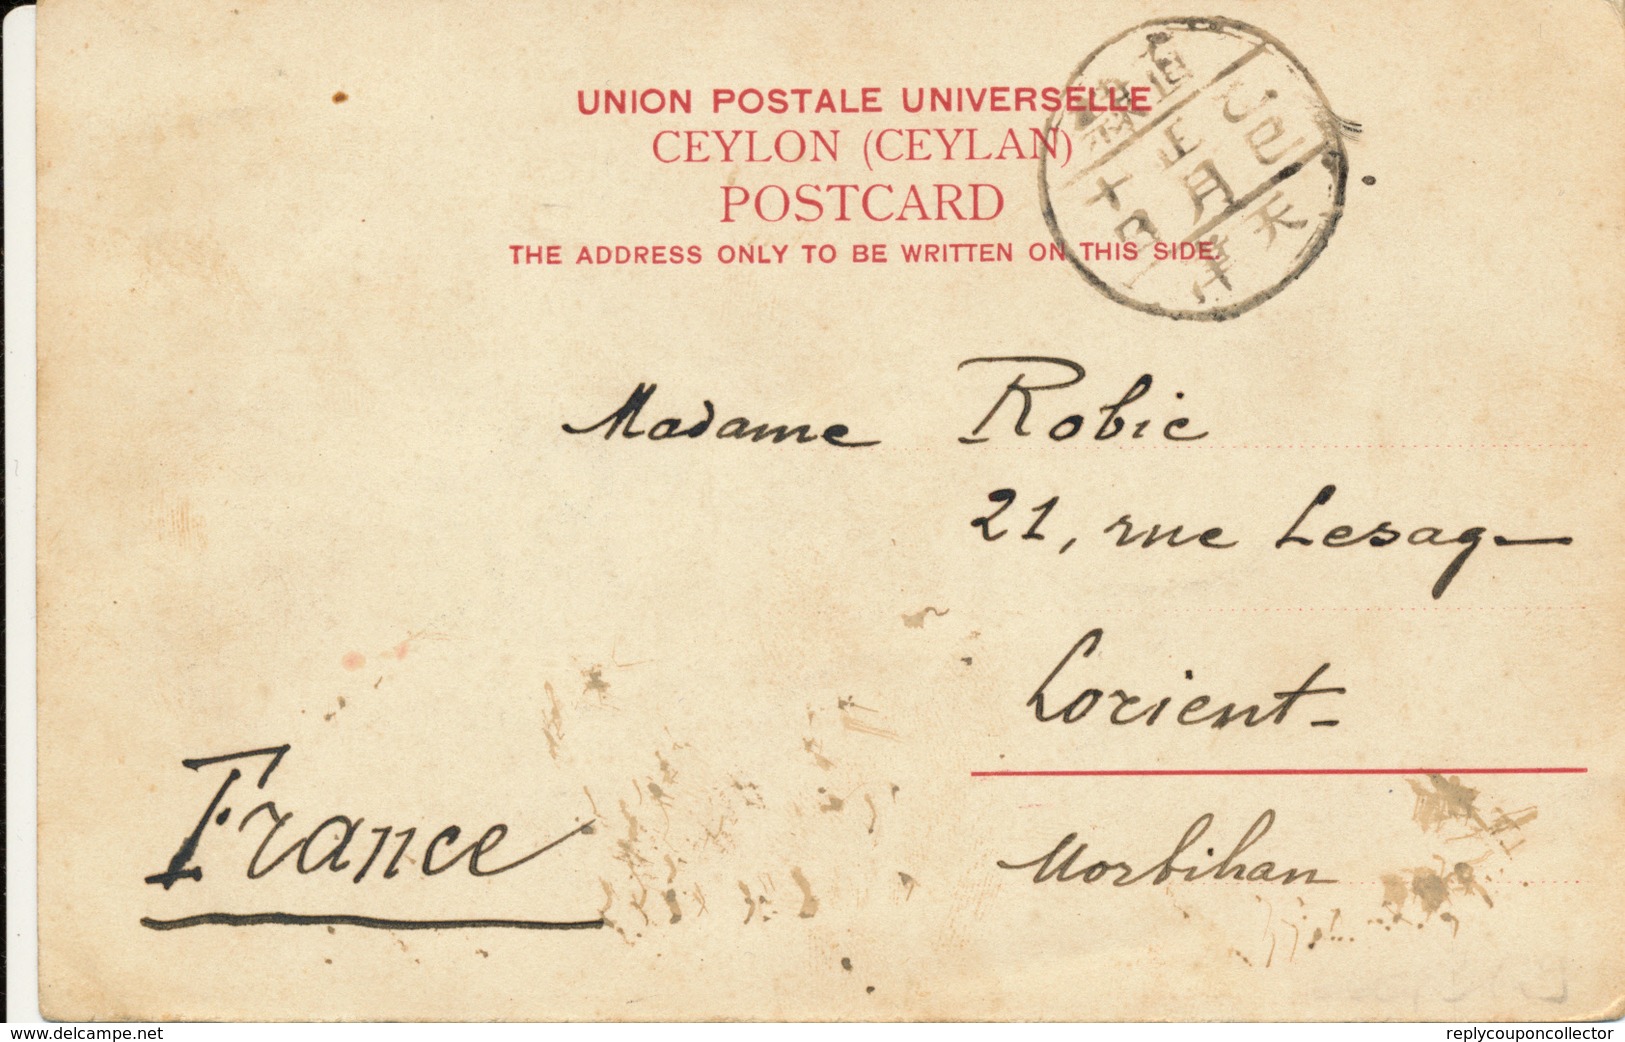 UNION POSTALE UNIVERSELLE
CEYLON (CEYLAN)
POSTCARD
THE ADDRESS ONLY TO BE WRITTEN ON THIS SIDE.
正月
十
日
巳
天
津
Madame Robic
21, rue Lesage
Lorient-
Morbihan
France
www.delcampe.net
replycouponcollector